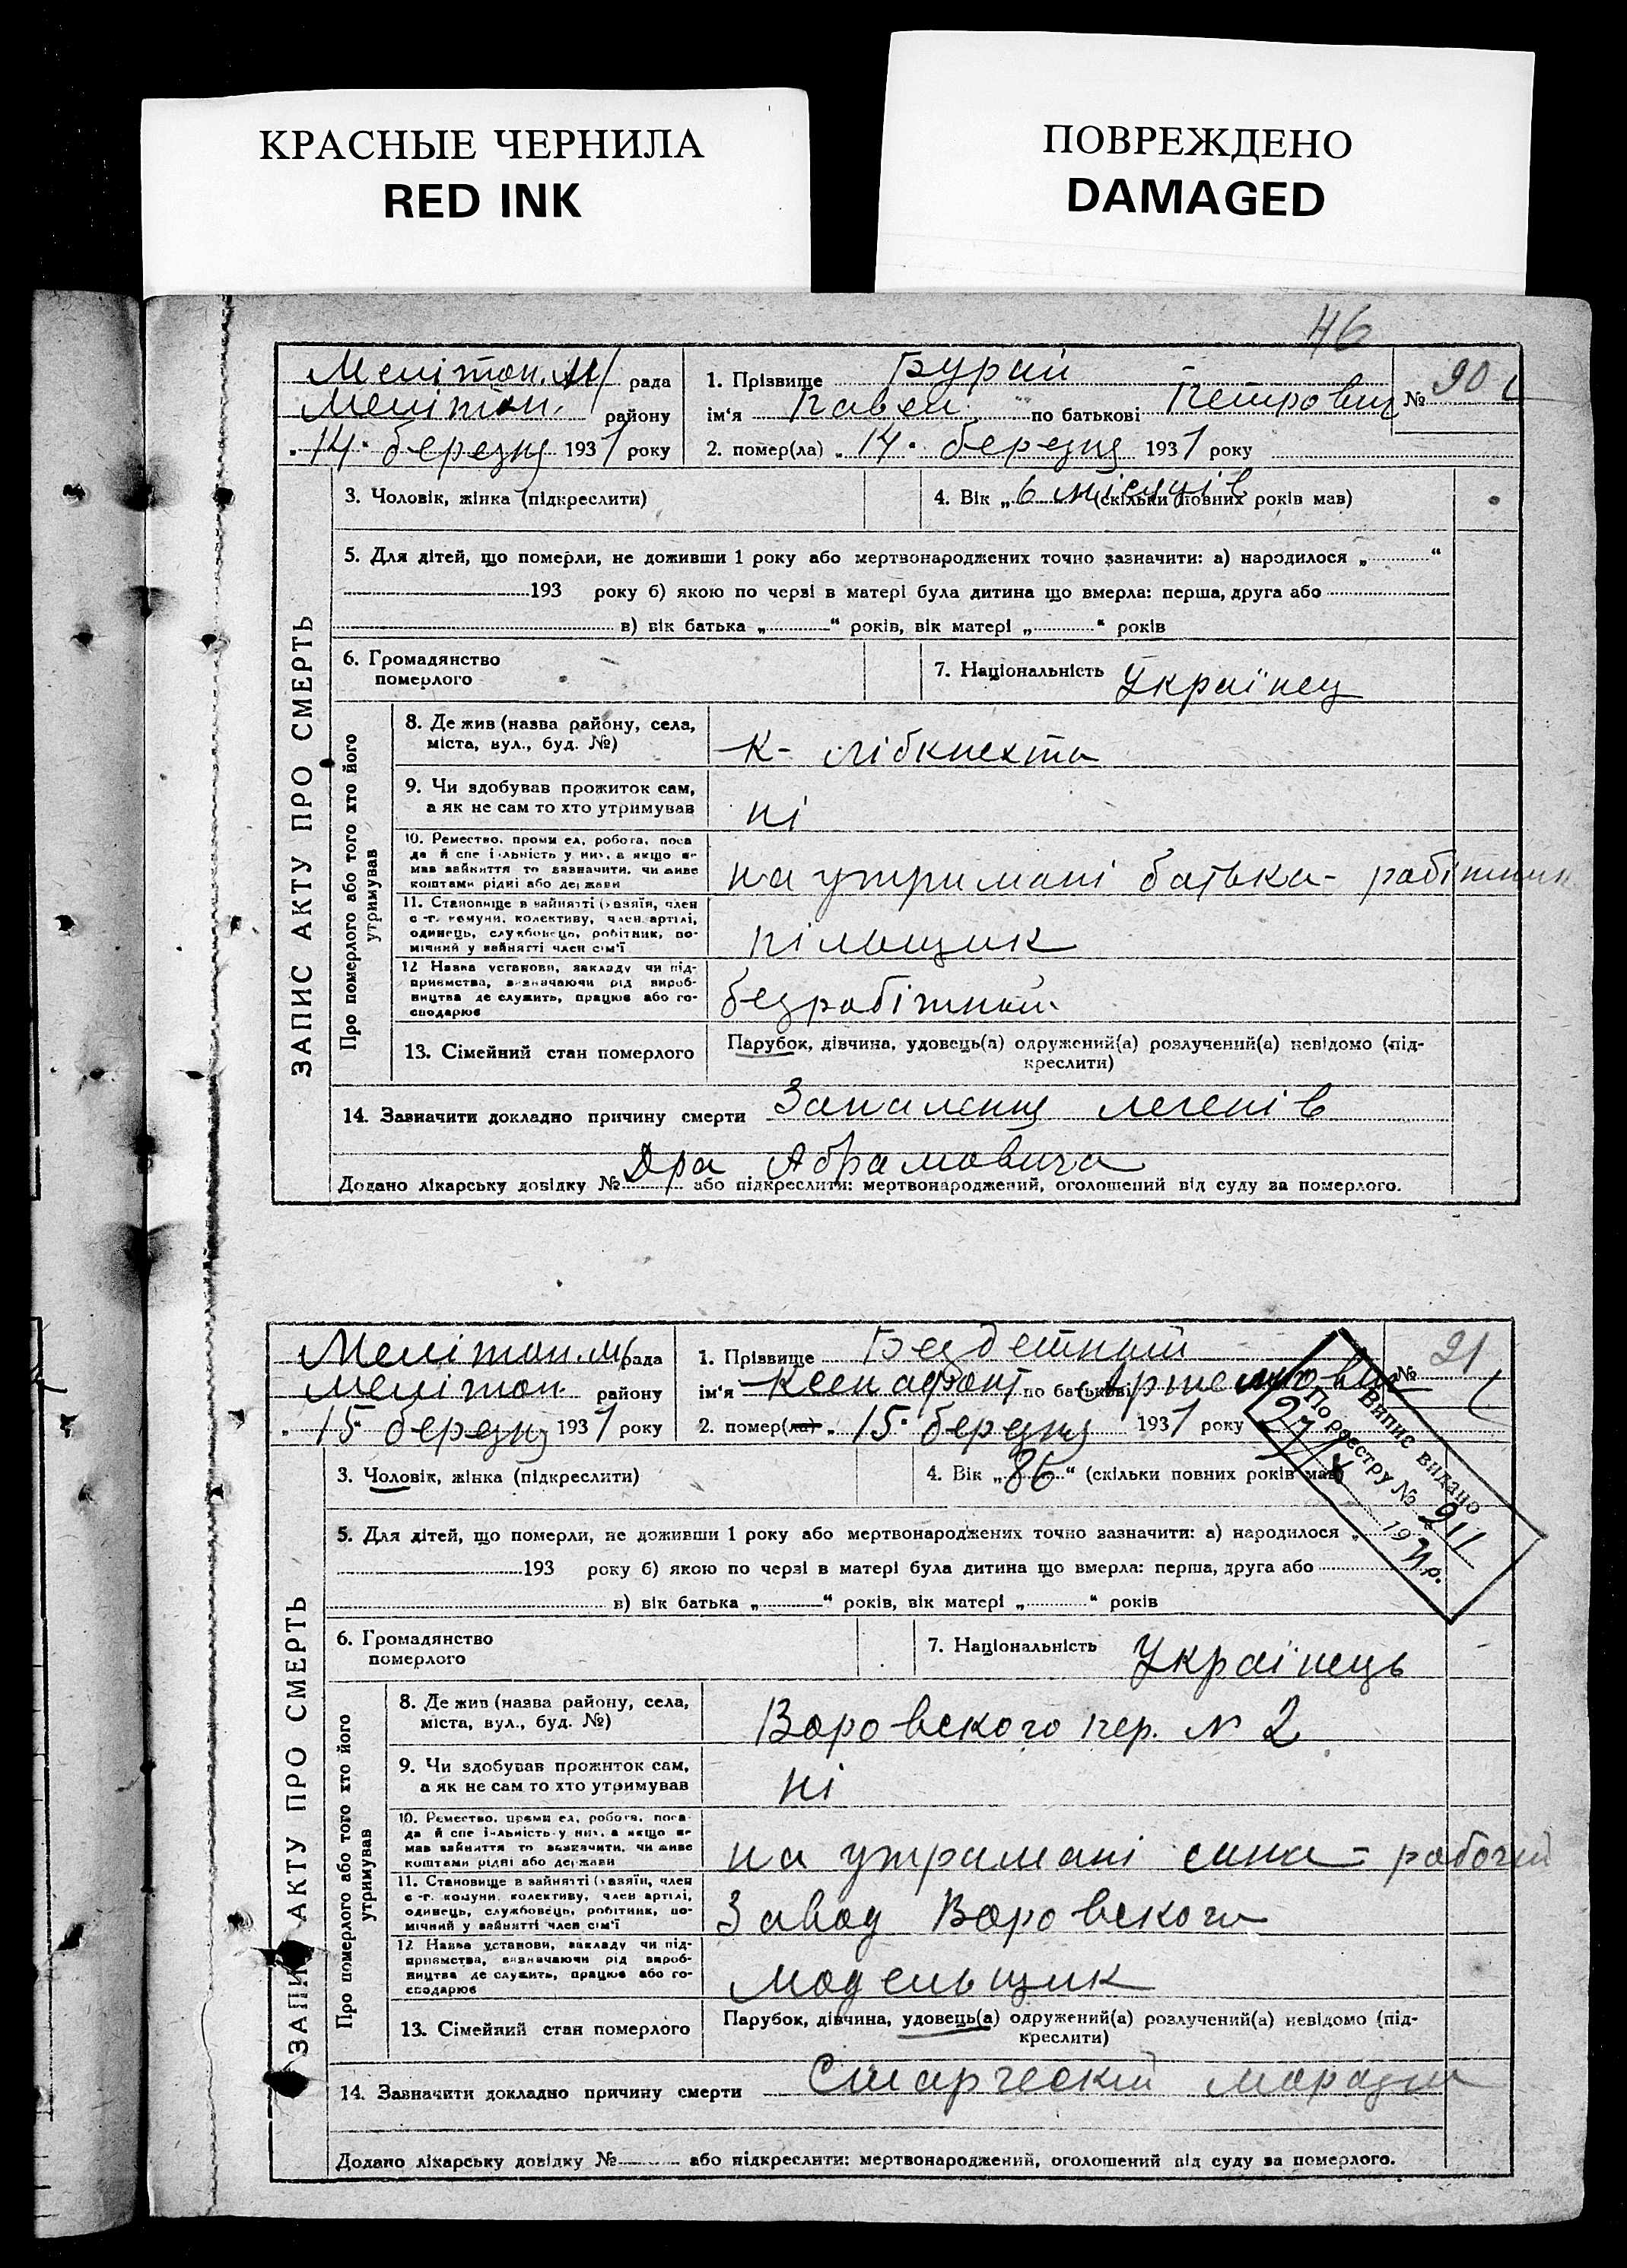 КРАСНЫЕ ЧЕРНИЛА
RED INK
ПОВРЕЖДЕНО
DAMAGED
46
Мелітоп. М/ рада
Мелітоп. району
„ 14 " березня 1931 року
1. Прізвище Бурай
ім'я Павел по батькові Петрович
№ 90
2. помер(ла) „ 14 " березня 1931 року
ЗАПИС АКТУ ПРО СМЕРТЬ
3. Чоловік, жінка (підкреслити)
4. Вік „ 6 місяців (скільки повних років мав)
5. Для дітей, що померли, не доживши 1 року або мертвонароджених точно зазначити: а) народилося „ “
193 року б) якою по черзі в матері була дитина що вмерла: перша, друга або
в) вік батька „ “ років, вік матері „ “ років
6. Громадянство
померлого
7. Національність Українец
Про померлого або того хто його
утримував
8. Де жив (назва району, села,
міста, вул., буд. №)
К- лібкнехта
9. Чи здобував прожиток сам,
а як не сам то хто утримував
ні
10. Ремество, проми ел, робота, поса
да й спе і льність у них, а якщо не
мав зайняття то зазначити, чи живе
коштами рідні або держави
на утримані батька - робітник
11. Становище в зайнятті (хазяїн, член
с.-г. комуни, колективу, член артілі,
одинець, службовець, робітник, по-
мічний у зайнятті член сім'ї
пільщик
12 Назва установи, закладу чи під-
приємства, визначаючи рід вироб-
ництва де служить, працює або го-
сподарює
безробітний
13. Сімейний стан померлого
Парубок, дівчина, удовець(а) одружений(а) розлучений(а) невідомо (під-
креслити)
14. Зазначити докладно причину смерти Запалення легенів
Дра Абрамовича
Додано лікарську довідку № або підкреслити: мертвонароджений, оголошений від суду за померлого.
Мелітоп. М/ рада
Мелітоп. району
„ 15 " березня 1931 року
1. Прізвище Бездетний
ім'я Ксенафонт по батькові Артемович
№ 91
2. помер(ла) „ 15 " березня 1931 року
Випис видано
По реєстру № 911
27/X 1971р.
ЗАПИС АКТУ ПРО СМЕРТЬ
3. Чоловік, жінка (підкреслити)
4. Вік „ 86 “ (скільки повних років мав)
5. Для дітей, що померли, не доживши 1 року або мертвонароджених точно зазначити: а) народилося „
193 року б) якою по черзі в матері була дитина що вмерла: перша, друга або
в) вік батька „ “ років, вік матері „ “ років
6. Громадянство
померлого
7. Національність Українець
Про померлого або того хто його
утримував
8. Де жив (назва району, села,
міста, вул., буд. №)
Воровского пер. № 2
9. Чи здобував прожиток сам,
а як не сам то хто утримував
ні
10. Ремество, проми ел, робота, поса
да й спе і льність у них, а якщо не
мав зайняття то зазначити, чи живе
коштами рідні або держави
на утримані сина - робочий
11. Становище в зайнятті (хазяїн, член
с.-г. комуни, колективу, член артілі,
одинець, службовець, робітник, по-
мічний у зайнятті член сім'ї
Завод Воровского
12 Назва установи, закладу чи під-
приємства, визначаючи рід вироб-
ництва де служить, працює або го-
сподарює
модельщик
13. Сімейний стан померлого
Парубок, дівчина, удовець(а) одружений(а) розлучений(а) невідомо (під-
креслити)
14. Зазначити докладно причину смерти Старческий маразм
Додано лікарську довідку № або підкреслити: мертвонароджений, оголошений від суду за померлого.